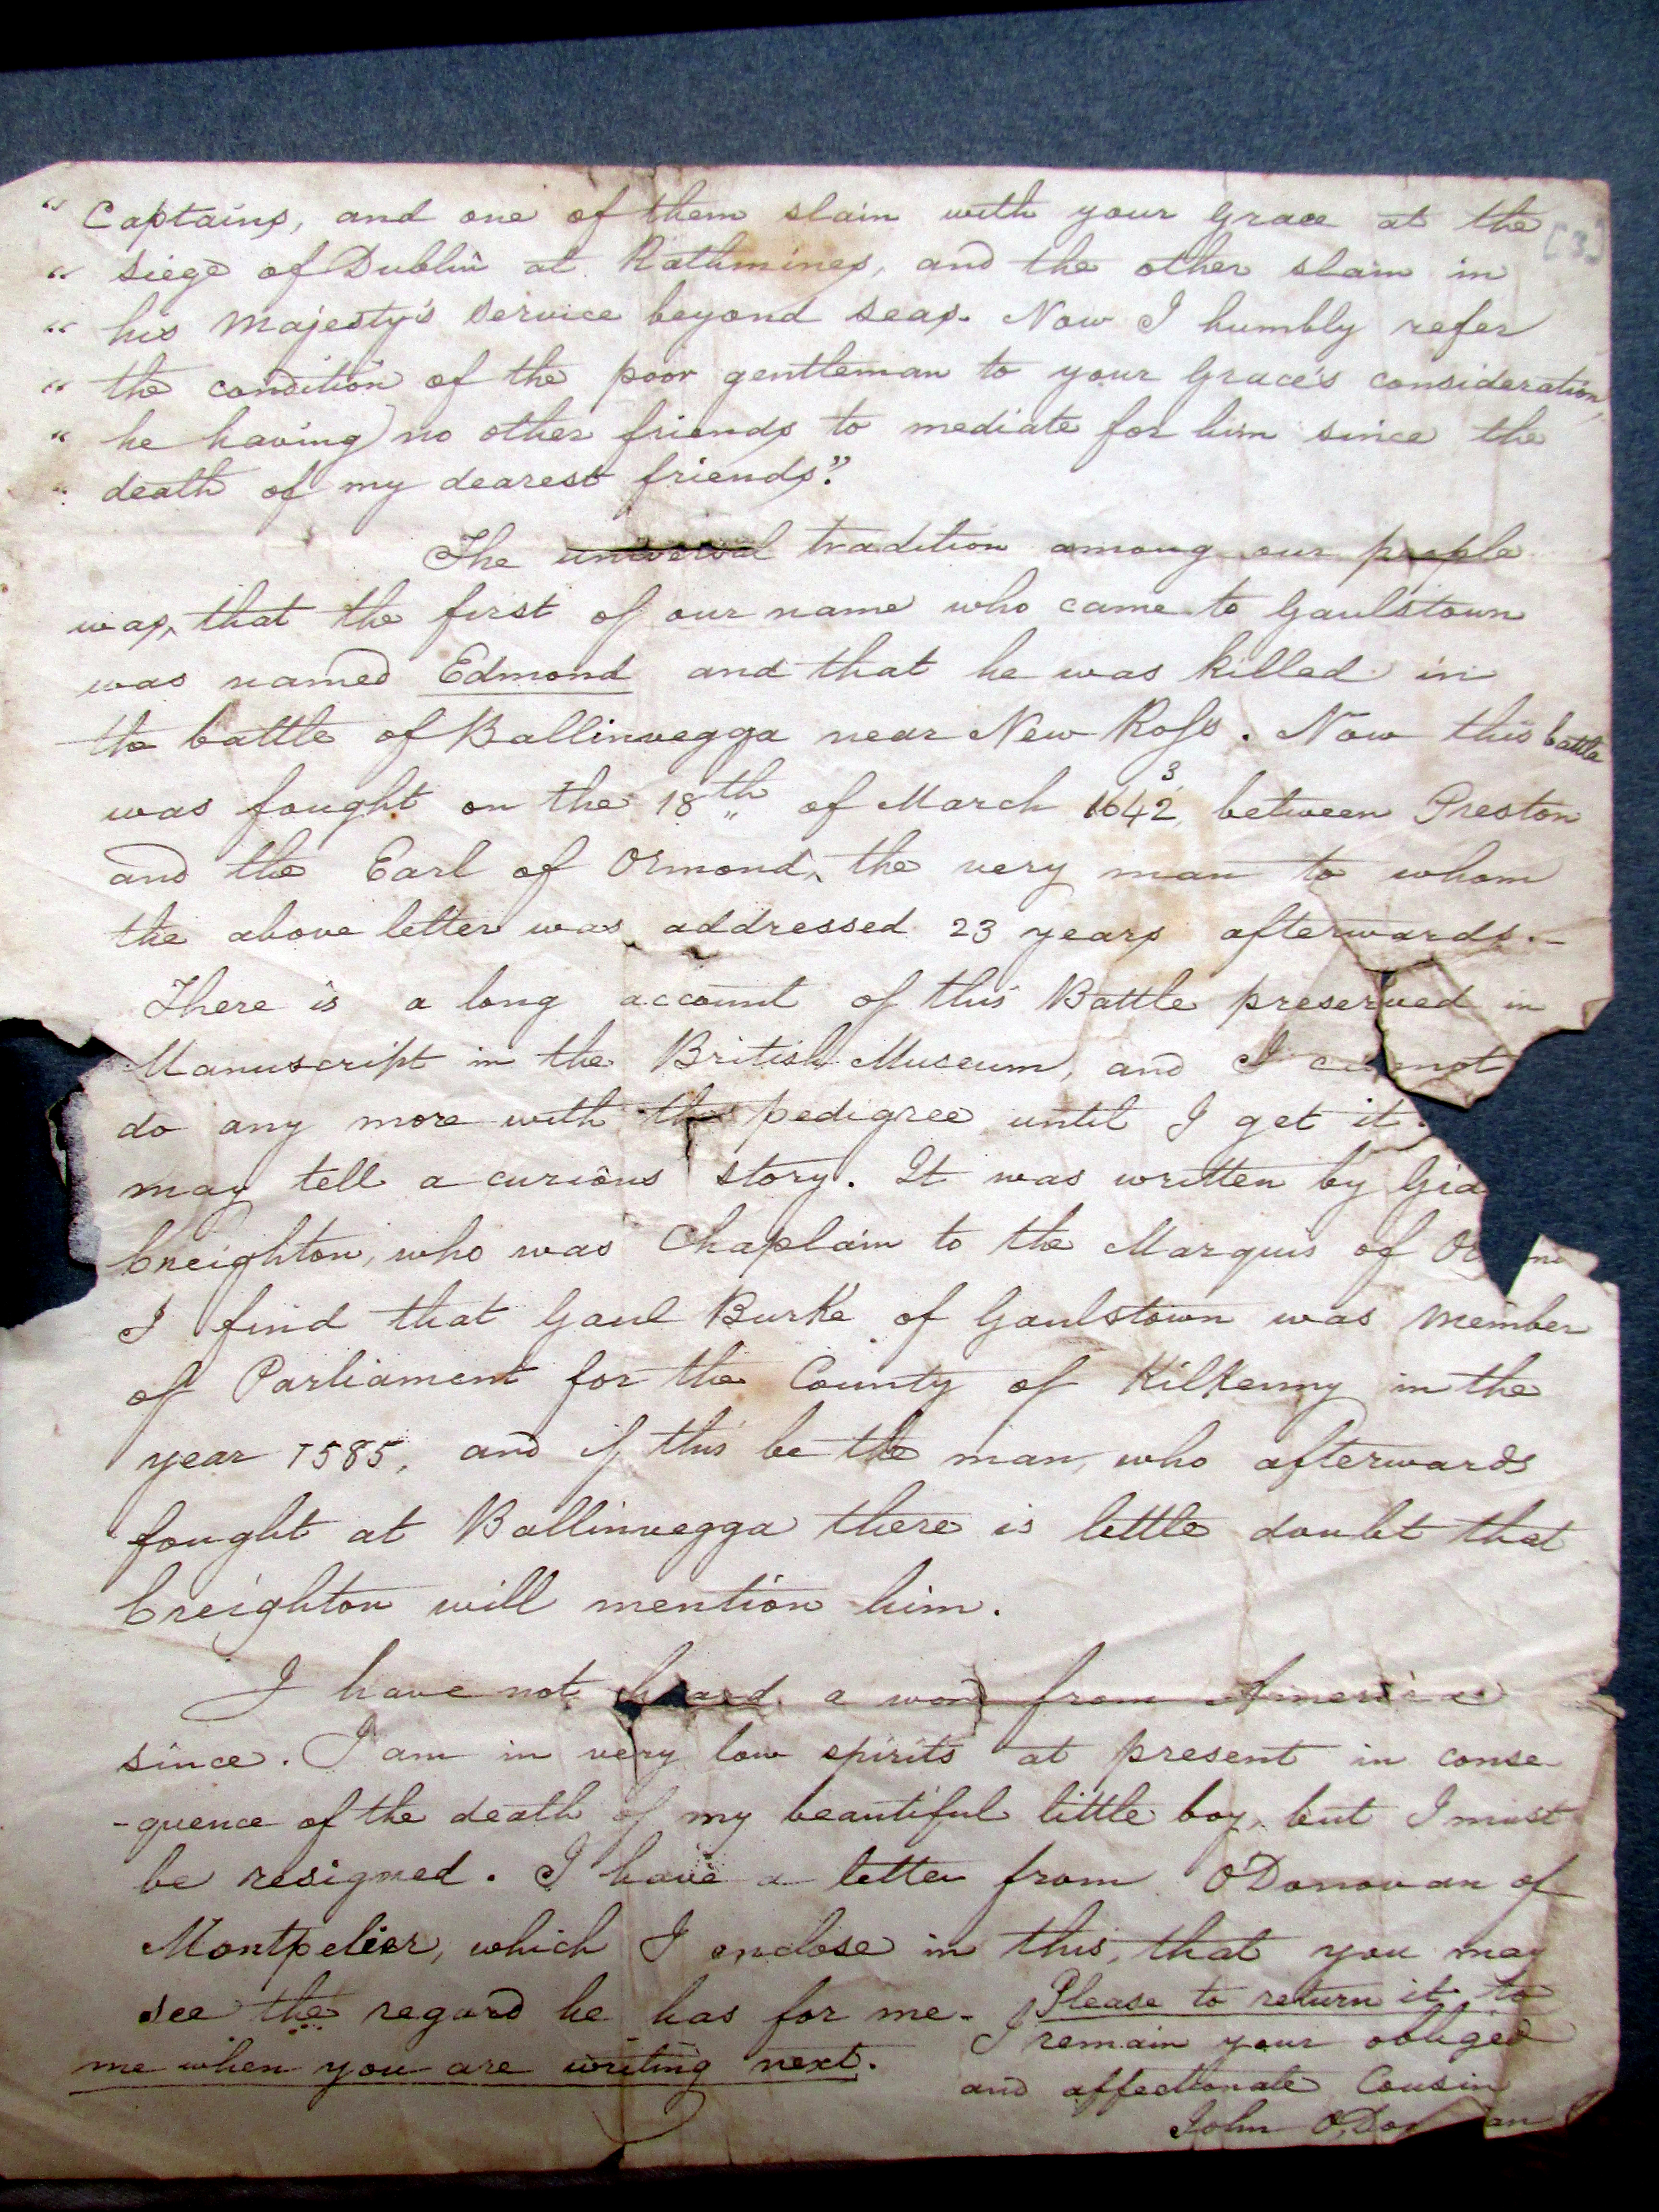 [3]
" Captains, and one of them slain with your Grace at the
" siege of Dublin at Rathmines, and the other slain in
" his Majesty's service beyond seas. Now I humbly refer
" the condition of the poor gentleman to your Grace's consideration,
" he having no other friends to mediate for him since the
" death of my dearest friends."
The universal tradition among our people
was, that the first of our name who came to Gaulstown
was named Edmond and that he was killed in
the battle of Ballinvegga near New Ross. Now this battle
was fought on the 18th of March 1642/3, between Preston
and the Earl of Ormond, the very man to whom
the above letter was addressed 23 years afterwards.-
There is a long account of this Battle preserved in
Manuscript in the British Museum, and I cannot
do any more with the pedigree until I get it.
may tell a curious story. It was written by Gra
Creighton, who was Chaplain to the Marquis of Or mo
I find that Gaul Burke of Gaulstown was Member
of Parliament for the County of Kilkenny in the
year 1585, and if this be the man, who afterwards
fought at Ballinvegga there is little doubt that
Creighton will mention him.
I have not heard a word from America
since. I am in very low spirits at present in conse-
-quence of the death of my beautiful little boy, but I must
be resigned. I have a letter from O'Donovan of
Montpelier, which I enclose in this, that you may
see the regard he has for me. Please to return it to
me when you are writing next.
I remain your obliged
and affectionate Cousin
John O'Don an